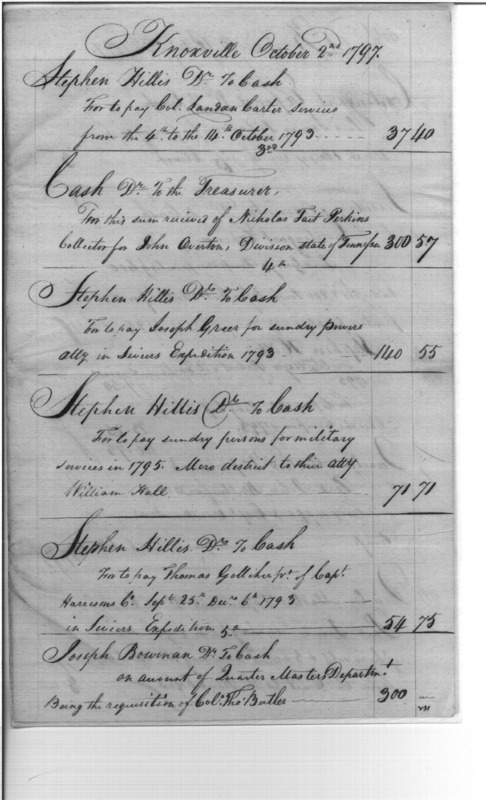 Knoxville October 2nd 1797.
Stephen Hillis Dr. To Cash
For to pay Col. Landan Carter services
from the 4th to the 14th October 1793 37 40
3rd
Cash Dr. To the Treasurer,
For this sum recieved of Nicholas Tait Perkins
Collector for John Overtons Division state of Tennessee 300 57
4th
Stephen Hillis Dr. To Cash
For to pay Joseph Greer for sundry powers
atty in Seviers Expedition 1793 140 55
Stephen Hillis Dr. To Cash
For to pay sundry persons for military
services in 1795. Mero district to their atty
William Hall 71 71
Stephen Hillis. Dr. To Cash
For to pay Thomas Golliher pt. of Capt.
Harrisons Co. Sept. 25th Decr. 6th 1793
in Seviers Expedition 54 75
5th
Joseph Bowman Dr. To Cash
on amount of Quarter Masters Departmt.
Being the requisition of Colo. Thos. Butler 300